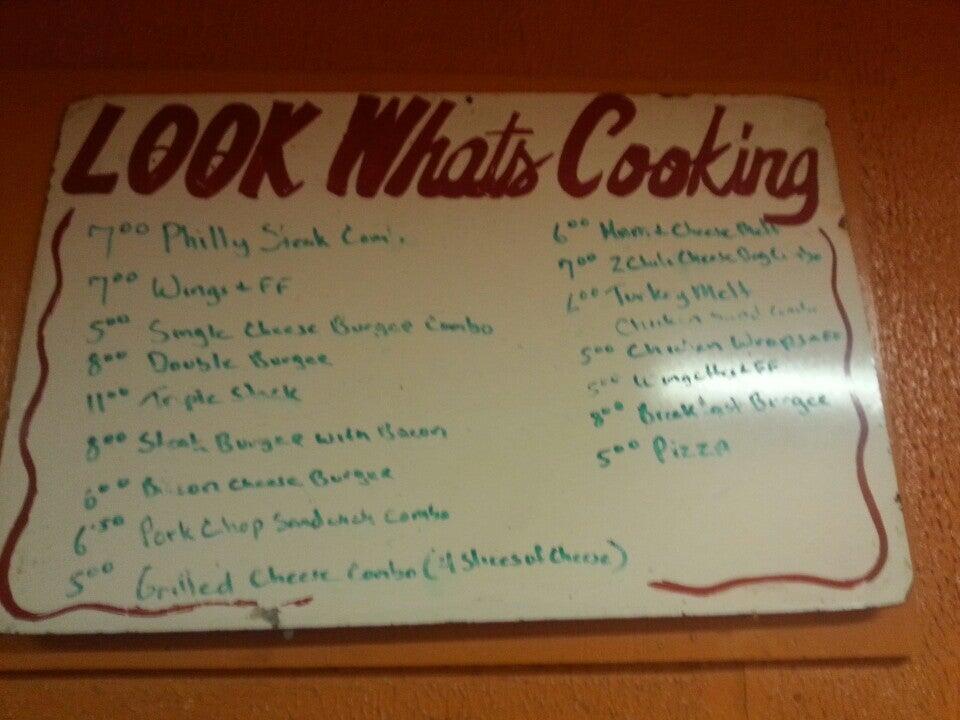 LOOK Whats Cooking
7.00 Philly Steak Com.
7.00 Wings + FF
5.00 Single Cheese Burger Combo
8.00 Double Burger
11.00 Triple Stack
8.00 Steak Burger with Bacon
6.00 Bacon Cheese Burger
6.50 Pork Chop Sandwich Combo
5.00 Grilled Cheese Combo (4 Slices of Cheese)
6.00 Ham & Cheese Melt
7.00 2 Chili Cheese Dog
6.00 Turkey Melt
Chicken Sand Combo
5.00 Chicken Wraps + FF
5.00 Wingettes + FF
8.00 Breakfast Burger
5.00 Pizza